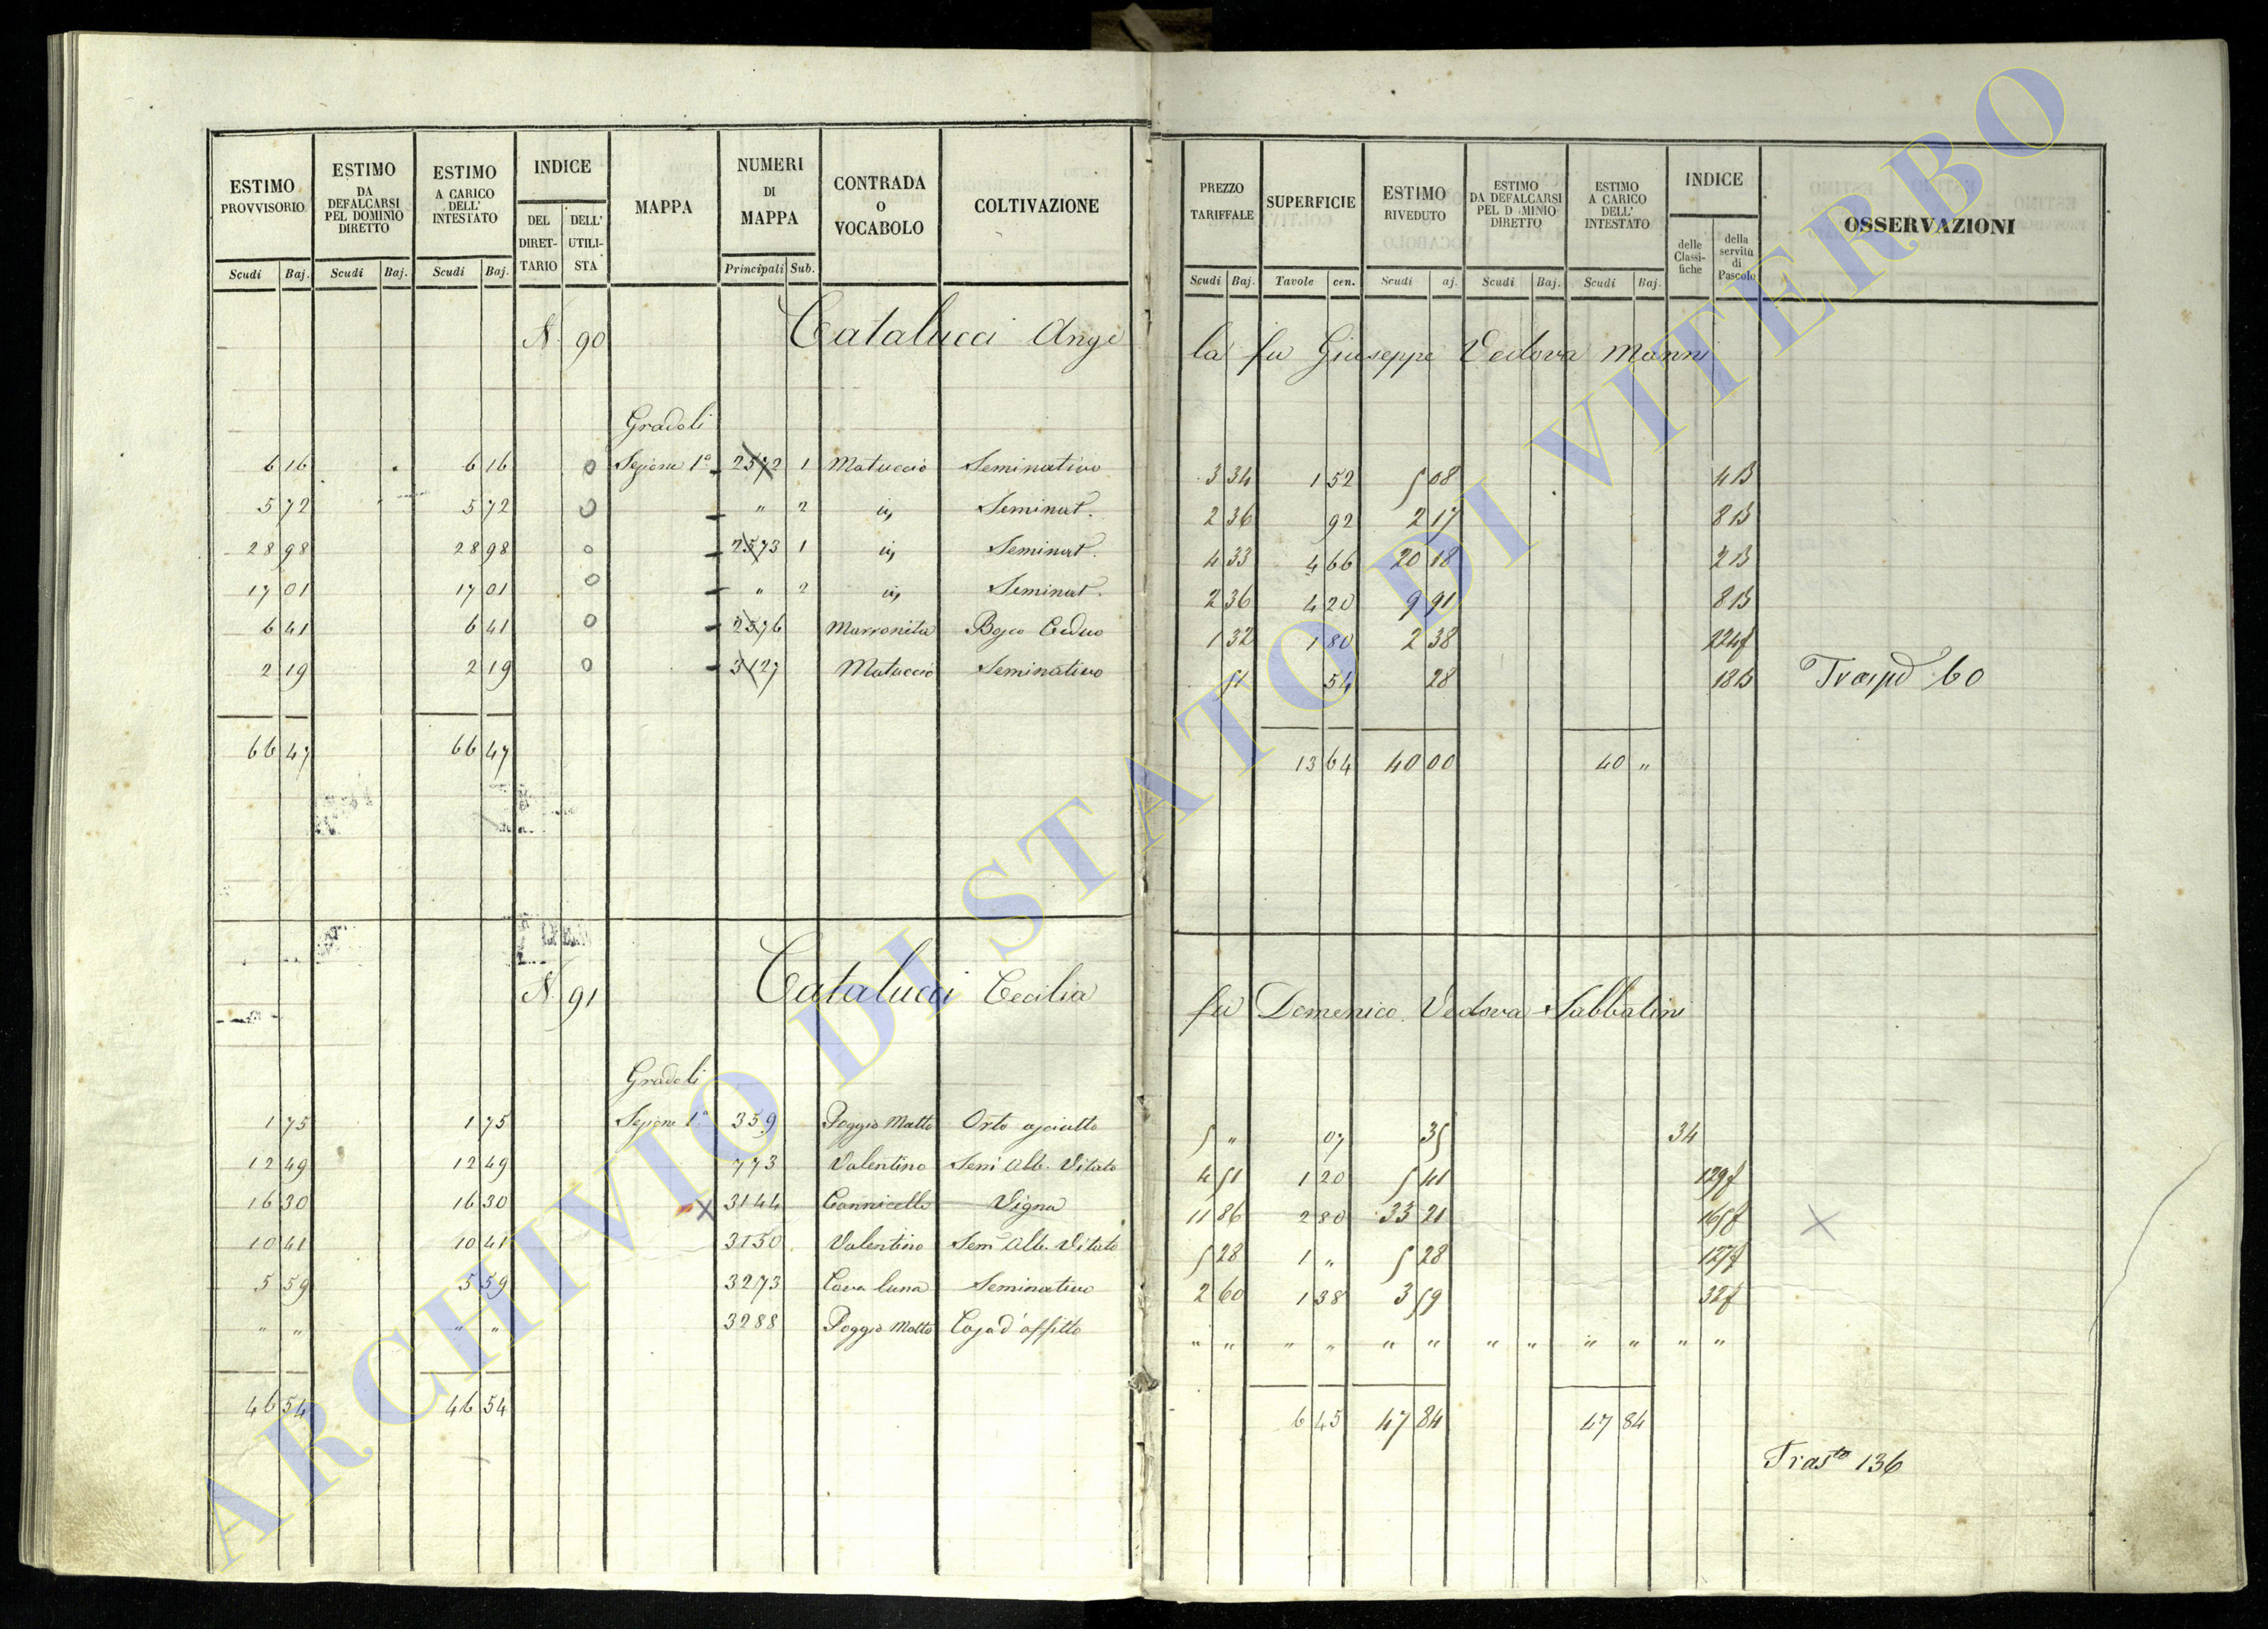 ESTIMO PROVVISORIO | ESTIMO DA DEFALCARSI PEL DOMINIO DIRETTO | ESTIMO A CARICO DELL' INTESTATO | INDICE | MAPPA | NUMERI DI MAPPA | CONTRADA O VOCABOLO | COLTIVAZIONE | PREZZO TARIFFALE | SUPERFICIE | ESTIMO RIVEDUTO | ESTIMO DA DEFALCARSI PEL D MINIO DIRETTO | ESTIMO A CARICO DELL' INTESTATO | INDICE | OSSERVAZIONI
DEL DIRET-TARIO | DELL' UTILI-STA | delle Classi-fiche | della servitù di Pascolo
Scudi Baj. | Scudi Baj. | Scudi Baj. | Principali Sub. | Scudi Baj. | Tavole cen. | Scudi aj. | Scudi Baj. | Scudi Baj.
N. 90 Catalucci Ange la fu Giuseppe Vedova Manni
Gradoli
6 16 | 6 16 | 0 | Sezione 1a | 2572 | 1 | Matuccio | Seminativo | 3 34 | 1 52 | 5 08 | 4 B
5 72 | 5 72 | 0 | " | 2 | id | Seminat. | 2 36 | 92 | 2 17 | 8 B
28 98 | 28 98 | 0 | 2573 | 1 | id | Seminat. | 4 33 | 4 66 | 20 18 | 2 B
17 01 | 17 01 | 0 | " | 2 | id | Seminat. | 2 36 | 4 20 | 9 91 | 8 B
6 41 | 6 41 | 0 | 2576 | Marronita | Bosco Ceduo | 1 32 | 1 80 | 2 38
2 19 | 2 19 | 0 | 3127 | Matuccio | Seminativo | 51 | 54 | 28 | 18 B | Traspd 60
66 47 | 66 47 | 13 64 | 40 00 | 40 "
N. 91 Catalucci Cecilia fu Domenico Vedova Sabbatini
Gradoli
1 75 | 1 75 | Sezione 1a | 359 | Poggio Matto | Orto asciutto | 5 " | 07 | 35 | 34
12 49 | 12 49 | 773 | Valentino | Semi Alb. Vitato | 4 51 | 1 20 | 5 41 | 129f
16 30 | 16 30 | X | 3144 | Cannicello | Vigna | 11 86 | 2 80 | 33 21 | 165f | X
10 41 | 10 41 | 3150 | Valentino | Sem Alb. Vitato | 5 28 | 1 " | 5 28 | 127f
5 59 | 5 59 | 3273 | Cava luna | Seminativo | 2 60 | 1 38 | 3 59 | 32f
" " | " " | 3288 | Poggio Matto | Casa d'affitto | " " | " " | " " | " " | " " | " "
46 54 | 46 54 | 6 45 | 47 84 | 47 84
Trasto 136
ARCHIVIO DI STATO DI VITERBO